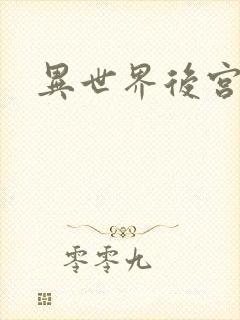 異世界後宮
零零九